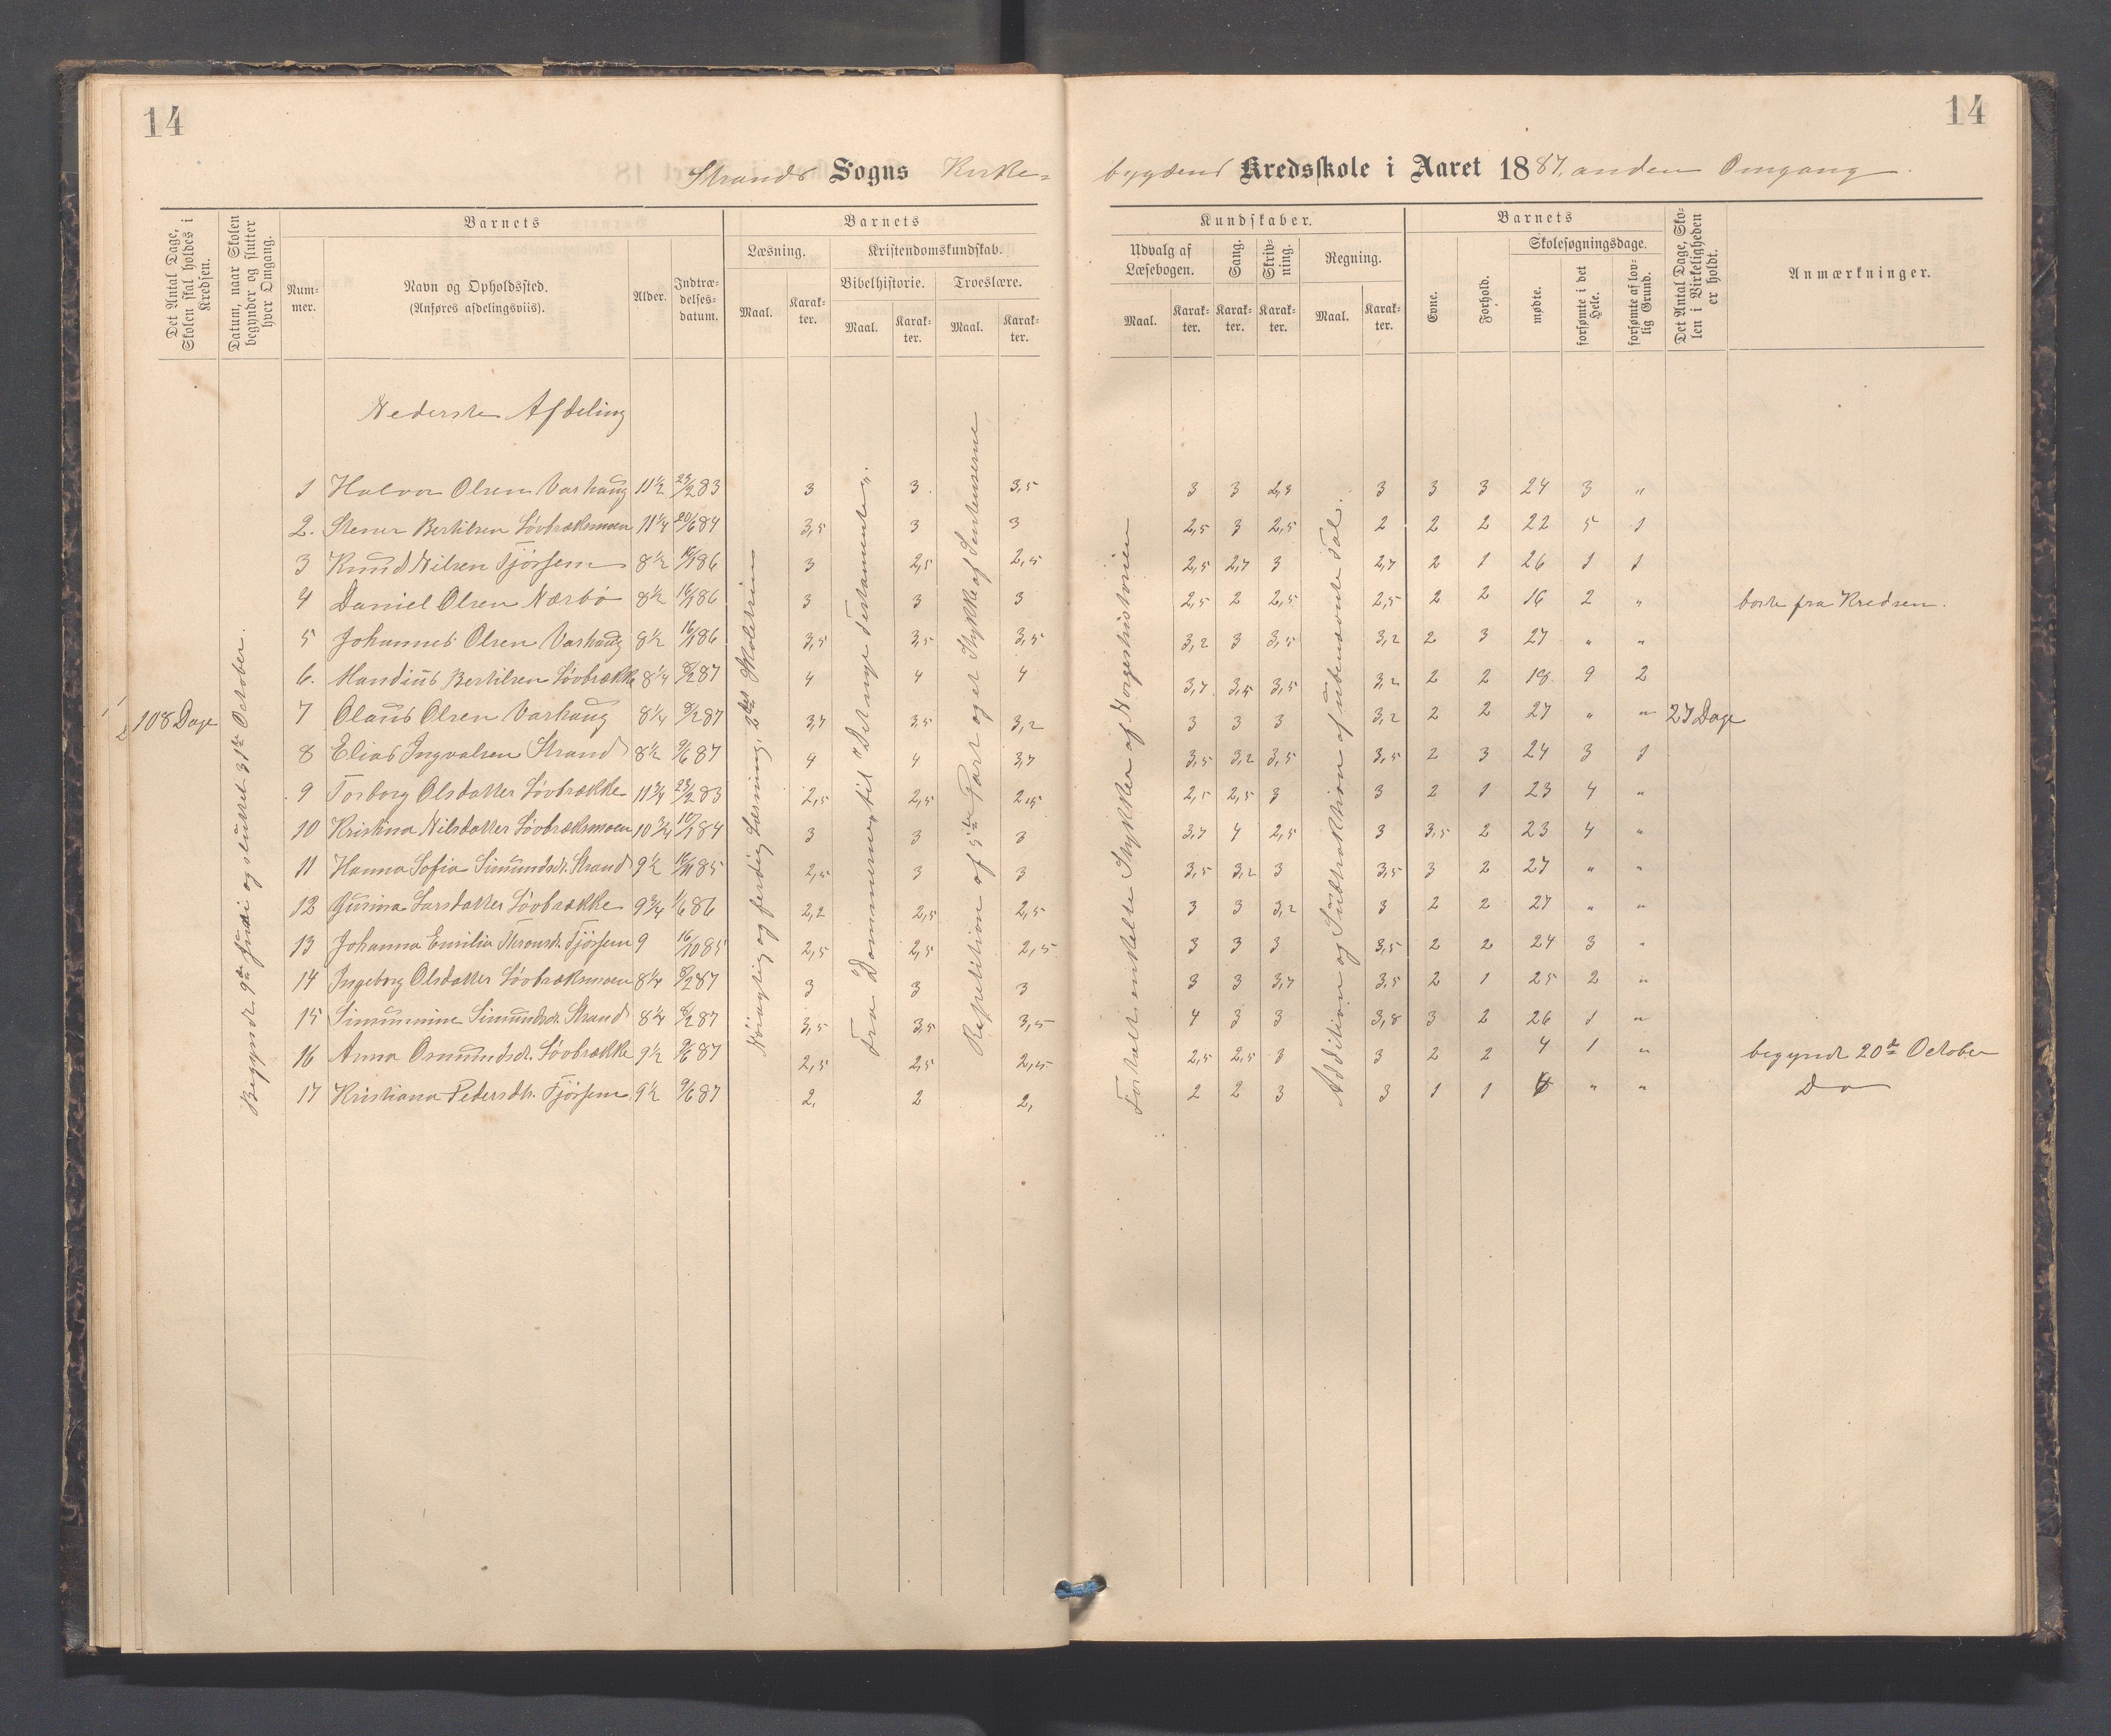 14
14
Strands Sogns Kirke=
bygdens Kredsskole i Aaret 1887, anden Omgang.
Det Antal Dage, Skolen skal holdes i Kredsen.
Datum, naar Skolen begynder og slutter hver Omgang.
Barnets
Nummer.
Navn og Opholdssted.
(Anføres afdelingsviis).
Alder.
Indtrædelsesdatum.
Barnets
Læsning.
Kristendomskundskab.
Bibelhistorie.
Troeslære.
Maal. Karakter. Maal. Karakter. Maal. Karakter.
Kundskaber.
Udvalg af Læsebogen.
Sang.
Skrivning.
Regning.
Maal. Karakter. Karakter. Karakter. Maal. Karakter.
Barnets
Evne.
Forhold.
Skolesøgningsdage.
mødte.
forsømte i det Hele.
forsømte af lovlig Grund.
Det Antal Dage, Skolen i Virkeligheden er holdt.
Anmærkninger.
Nederste Afdeling
108 Dage
Begyndt 9de Juni og sluttet 31te October.
Nøiagtig og ferdig Læsning, 2det Skoletrin
Fra "Dommerne" til "Det nye Testamente".
Repetition af 5te Part og et Stykke af Sentenserne
Fortalt enkelte Stykker af Norgeshistorien
Addition og Subtraktion af ubenævnte Tal.
27 Dage
1 Halvor Olsen Varhaug 11½ 23/2 83 3 3 3,5 3 3 2,3 3 3 3 24 3 "
2. Stener Bertilsen Løvbrækmoen 11¼ 20/6 84 3,5 3 3 2,5 3 2,5 2 2 2 22 5 1
3 Knud Nilsen Tjørsem 8½ 16/1 86 3 2,5 2,5 2,5 2,7 3 2,7 2 1 26 1 1
4 Daniel Olsen Nærbø 8½ 16/1 86 3 3 3 2,5 2 2,5 2,5 2 2 16 2 " borte fra Kredsen.
5 Johannes Olsen Varhaug 8½ 16/1 86 3,5 3,5 3,5 3,2 3 3,5 3,2 2 3 27 " "
6. Mandius Bertilsen Løvbrække 8¼ 8/2 87 4 4 4 3,7 3,5 3,5 3,2 2 2 18 9 2
7 Olaus Olsen Varhaug 8¼ 8/2 87 3,7 3,5 3,2 3 3 3 3,2 2 2 27 " "
8 Elias Ingvalsen Strand 8½ 9/6 87 4 4 3,7 3,5 3,2 3,5 3,5 2 3 24 3 1
9 Torborg Olsdatter Løvbrække 11¾ 23/2 83 2,5 2,5 2,5 2,5 2,5 3 3 2 1 23 4 "
10 Kristina Nilsdatter Løvbræksmoen 10¾ 10/1 84 3 3 3 3,7 4 2,5 3 3,5 2 23 4 "
11 Hanna Sofia Simundsdt. Strand 9½ 2,5 3 3 3,5 3,2 3 3,5 3 2 27 " "
12 Gurina Larsdatter Løvbrække 9¾ 1/6 86 2,2 2,5 2,5 3 3 3,2 3 2 2 27 " "
13 Johanna Emilia Tjørsem 9 16/10 85 2,5 2,5 2,5 3 3 3 3,5 2 2 24 3 "
14 Ingeborg Olsdatter Løvbræksmoen 8¼ 8/2 87 3 3 3 3 3 3,7 3,5 2 1 25 2 "
15 Simunnine Simundsdt. Strand 8¼ 8/2 87 3,5 3,5 3,5 4 3 3 3,8 3 2 26 1 "
16 Anna Osmundsdt. Løvbrække 9½ 9/6 87 2,5 2,5 2,5 2,5 2,5 3 3 2 2 4 1 " begyndt 20de October
17 Kristiana Pedersdtr. Tjørsem 9½ 9/6 87 2, 2 2, 2 2 3 3 1 1 " " Do